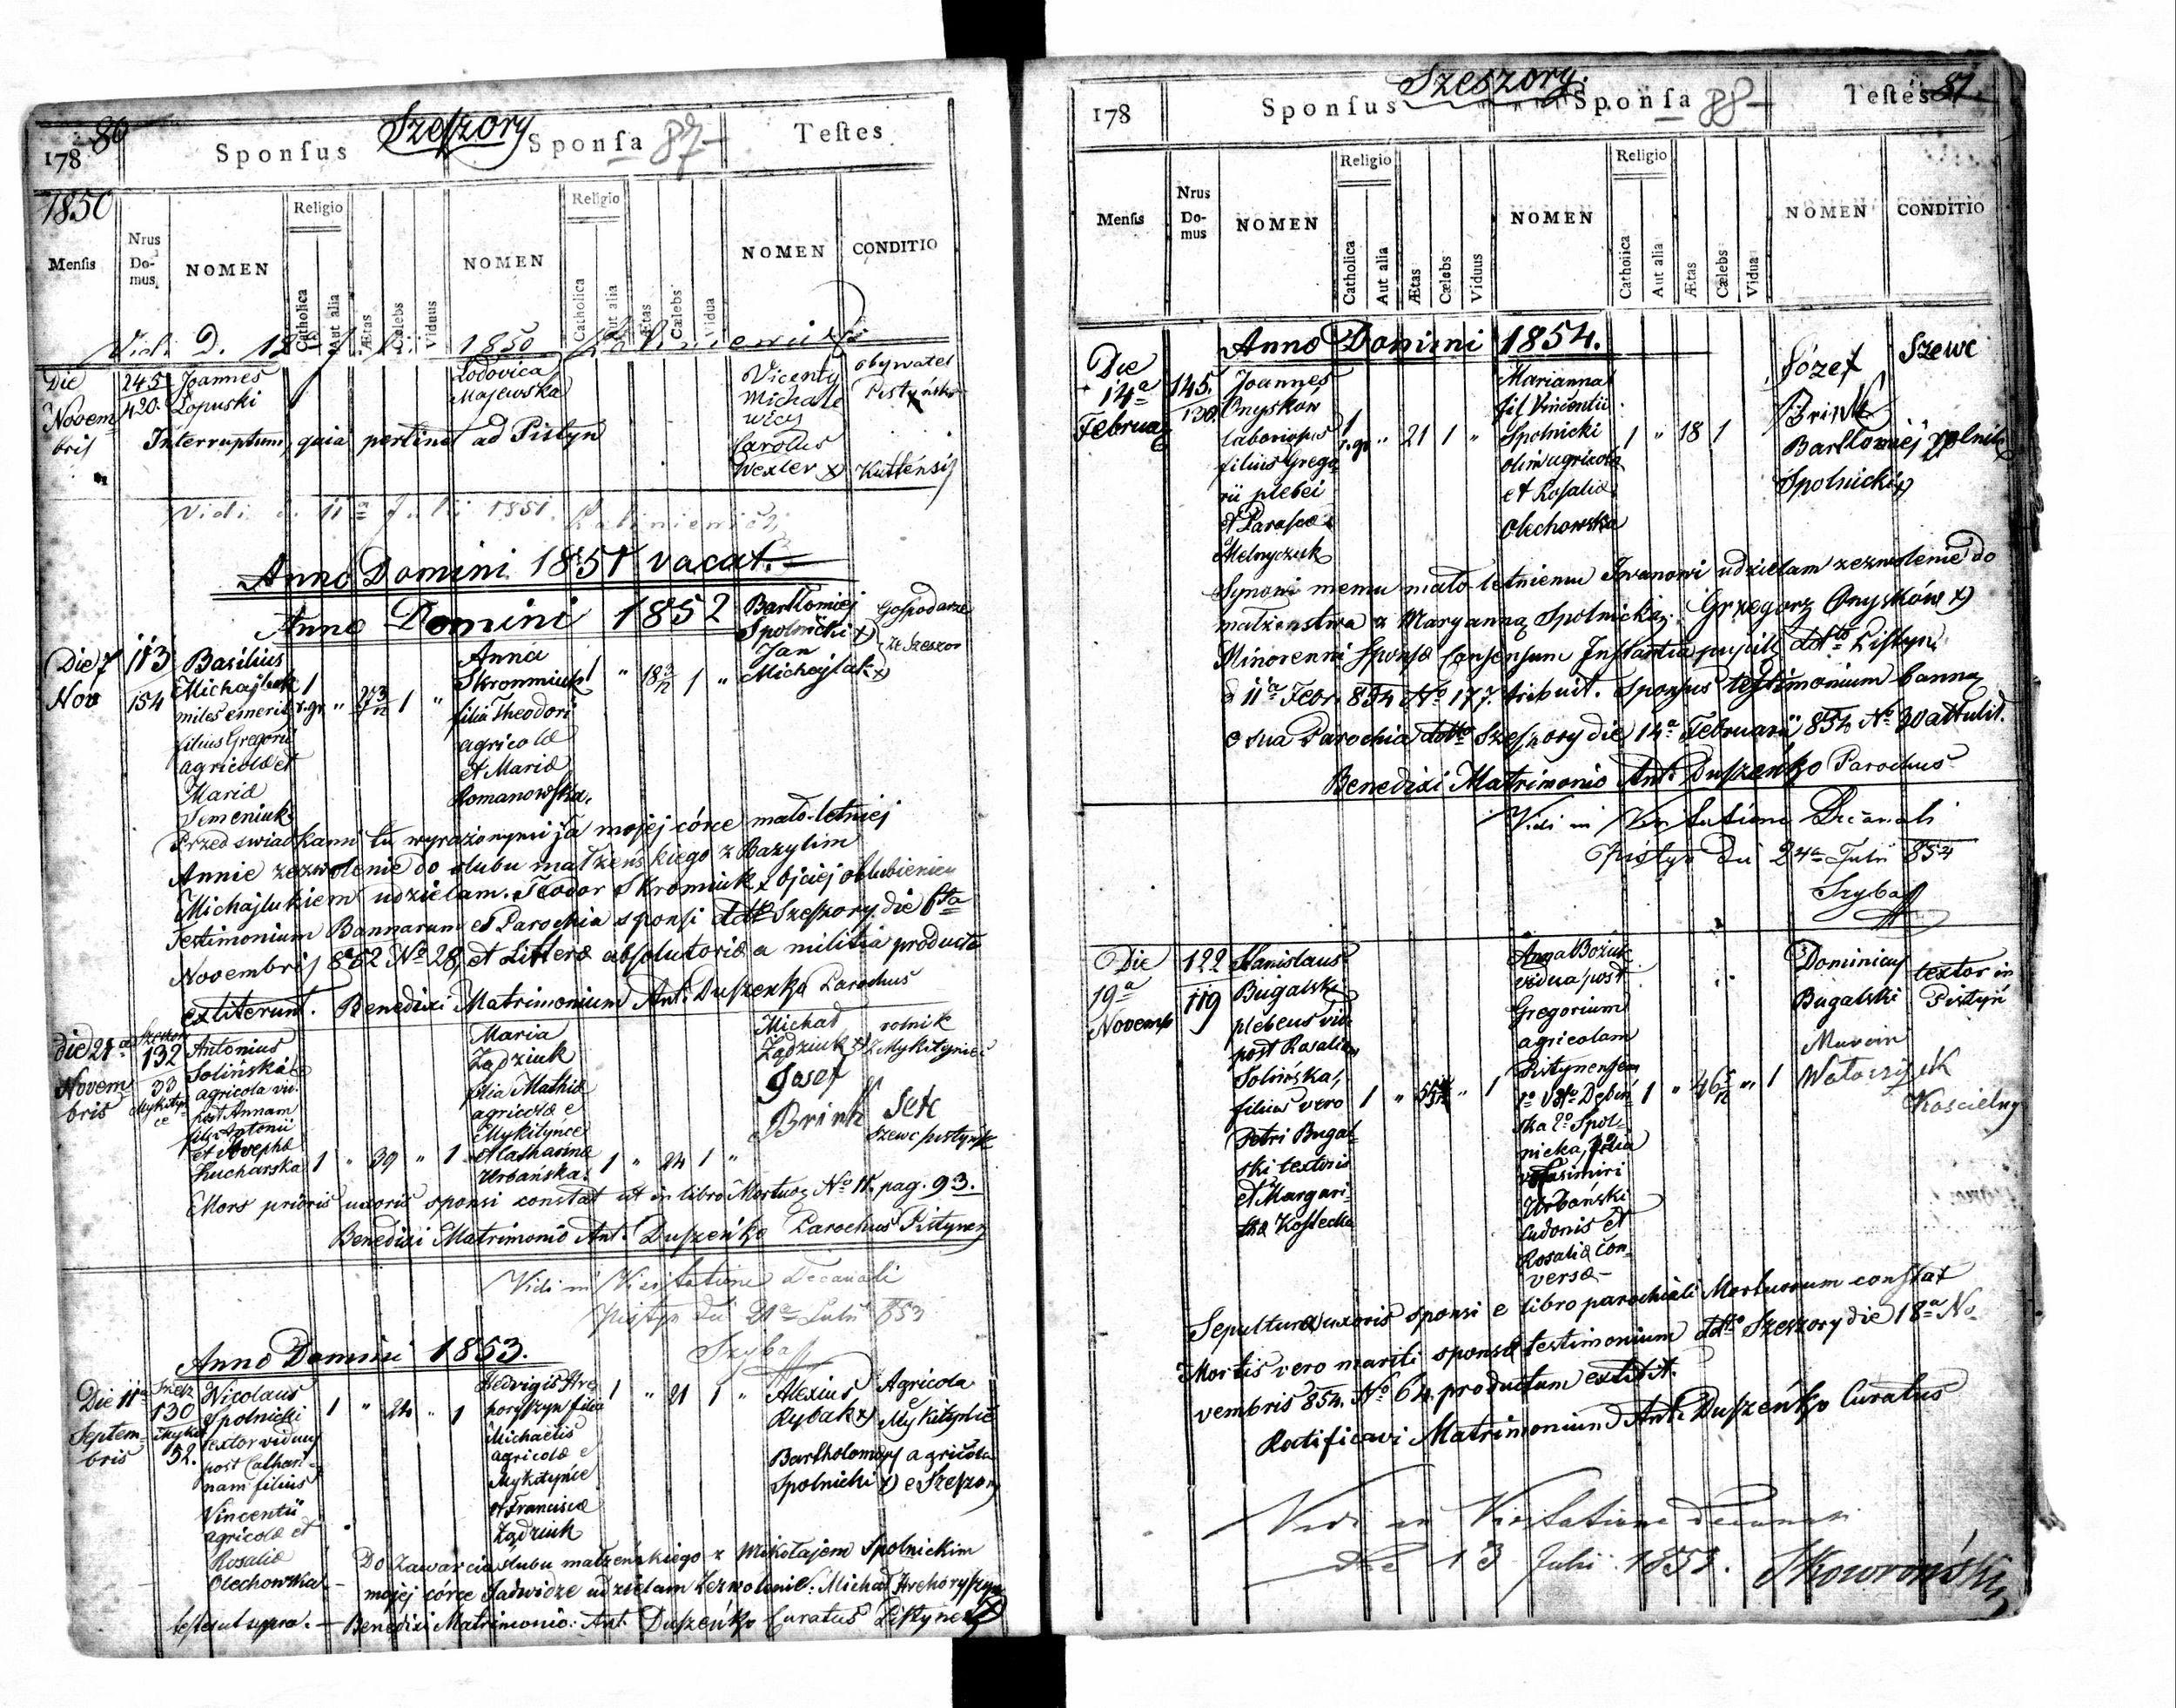 86
Szeszory
87
178
Sponſus
Sponſa
Teſtes
1850
Menſis
Nrus Domus
NOMEN
Religio
Catholica
Aut alia
Ætas
Cælebs
Viduus
NOMEN
Religio
Catholica
Aut alia
Ætas
Cælebs
Vidua
NOMEN
CONDITIO
Vidi D. 1850
Die
Novem
bris
245
420.
Joannes
Łopuski
Lodovica
Majewska
Vicenty
Michale
wicz
Carolus
Wexler x)
obywatel
Pistyński
Kuttensis
Interruptum, quia pertinet ad Pistyn
Vidi d. 11a Julii 1851.
Anno Domini 1851 vacat.
Anno Domini 1852
Die 7
Nov
113
154
Basilius
Michajluk
miles emerit
filius Gregorii
agricolæ et
Mariæ
Semeniuk
1
r. gr
"
27 3/12
1
"
Anna
Skromniuk
filia Theodori
agricolæ
et Mariæ
Romanowska.
1
"
18 3/12
1
"
Bartłomiej
Spolnicki x)
Jan
Michajlak x)
Gospodarze
z Szeszor
Przed swiadkami tu wyrażonymi ja mojej córce mało-letniej
Annie zezwolenie do slubu małżeńskiego z Bazylim
Michajlukiem udzielam. Teodor Skromniuk x Ojciej oblubienicy
Testimonium Bannarum et Parochia sponsi ddtto Szeszory die 6ta
Novembris 852 No 28, et Litteræ absolutoriæ a militia productæ
extiterunt. Benedixi Matrimonium Ant. Duszeńko Parochus
die 21a
Novem
bris
Szeszor
132
33
Mykityn
ce
Antonius
Soliński
agricola vid.
post Annam
fili Antonii
et Josephæ
Kucharska
1
"
39
"
1
Maria
Żądziuk
filia Mathiæ
agricolæ e
Mykitynce
et Catharinæ
Urbańska.
1
"
24
1
"
Michał
Żądziuk x)
Josef
Brink
rolnik
z Mykityniec
szewc pistyńsk
Mors prioris uxoris sponsi constat ut in libro Mortuor. No II. pag. 93.
Benedixi Matrimonio Ant. Duszeńko Parochus Pistynen
Vidi in Visitatione Decanali
Pistyn die 21a Julii 853
Szyba
Anno Domini 1853.
Die 11a
Septem
bris
Szesz
130
Mykit
52.
Nicolaus
Spolnicki
textor viduus
post Cathari
nam filius
Vincentii
agricolæ et
Rosaliæ
Olechowska
1
"
24
"
1
Hedvigis Hre
horyszyn filia
Michaelis
agricolæ e
Mykitynce
et Franciscæ
Żądziuk
1
"
21
1
"
Alexius
Rybak x)
Bartholomæus
Spolnicki x)
Agricola
e Mykitynce
agricola
e Szeszory
Do zawarcia slubu małżeńskiego z Mikołajem Spolnickim
mojej córce Jadwidze udzielam zezwolenie. Michał Hrehoryszyn
testes ut supra. — Benedixi Matrimonio: Ant. Duszeńko Curatus Pistynen
87.
Szeszory.
88
178
Sponſus
Sponſa
Teſtes
Menſis
Nrus Domus
NOMEN
Religio
Catholica
Aut alia
Ætas
Cælebs
Viduus
NOMEN
Religio
Catholica
Aut alia
Ætas
Cælebs
Vidua
NOMEN
CONDITIO
Anno Domini 1854.
Die
14a
Februar
145.
130.
Joannes
Onyskow
laboriosus
filius Grego
rii plebei
et Parascæ
Melnyczuk
1
r. gr
"
21
1
"
Marianna
fil Vincentii
Spolnicki
olim agricolæ
et Rosaliæ
Olechowska
1
"
18
1
Józef
Brink
Bartłomiej
Spolnicki x)
Szewc
rolnik
Synowi memu mało-letniemu Iwanowi udzielam zezwolenie do
małzenstwa z Maryanną Spolnicką: Grzegorz Onysków x)
Minorenni Sponsæ Consensum Instantia pupill ddtto Pistyn
d 11a Febr. 854 No 177. tribuit. Sponsus testimonium bannor
e sua Parochia ddtto Szeszory die 14a Februarii 854 No 30 attulit.
Benedixi Matrimonio Ant. Duszeńko Parochus
Vidi in Visitatione Decanali
Pistyn die 24a Julii 854
Szyba
Die
19a
Novemb
122
119
Stanislaus
Bugalski
plebeus vid.
post Rosaliam
Solińska,
filius vero
Petri Bugal
ski textoris
et Margari
thæ Kostecka
1
"
"
1
Anna Bożiuk
vidua post
Gregorium
agricolam
Pistynensem
1o Voto Dębiń
ska 2o Spol
nicka, filia
Casimiri
Urbański
ludonis et
Rosaliæ con
versæ
1
"
46 5/12
"
1
Dominicus
Bugalski
Marcin
Wataszczuk
textor in
Pistyń
Koscielny
Sepultura uxoris sponsi e libro parochiali Mortuorum constat
Mortis vero mariti sponsæ testimonium ddtto Szeszory die 18a No
vembris 854. No 64 productum extitit.
Ratificavi Matrimonium Ant. Duszeńko Curatus
Vidi in Visitatione decanali
die 13 Julii 1855. Skowroński